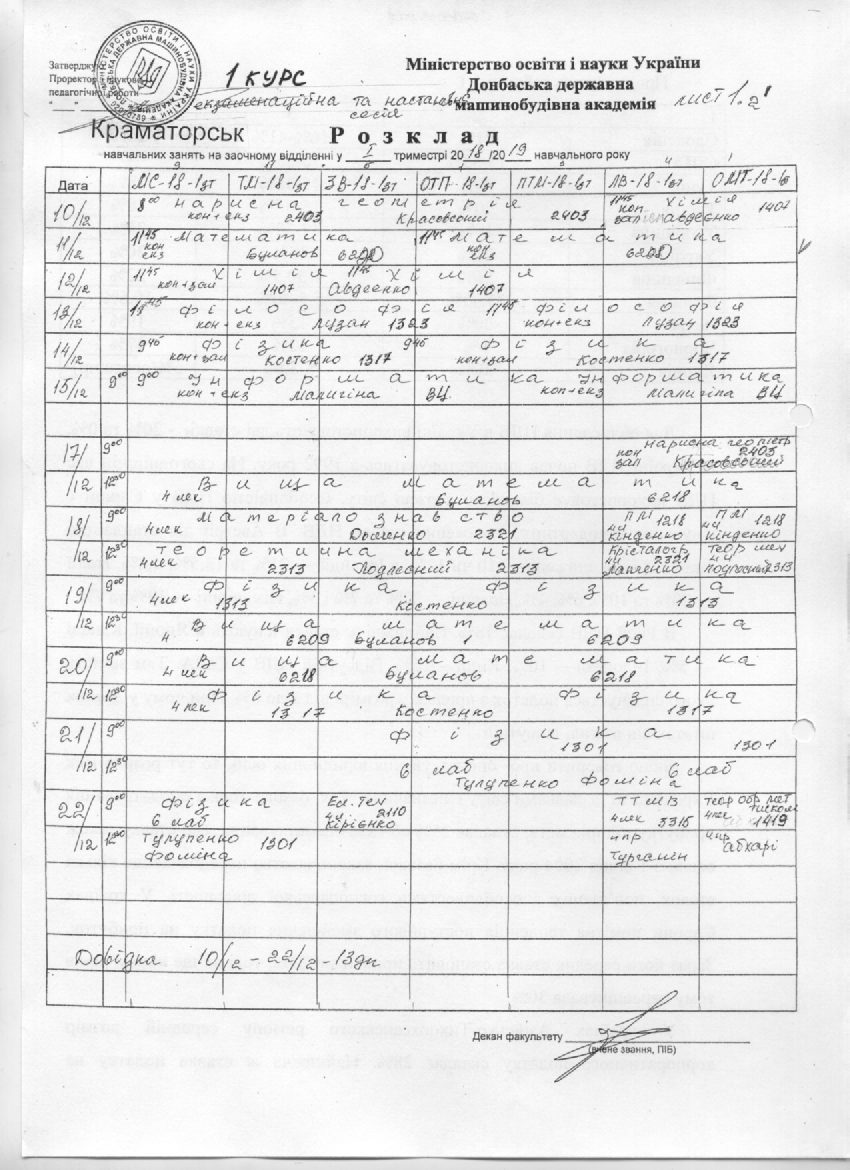 Затверджую
Проректор з науково-
педагогічної роботи
1 КУРС
Міністерство освіти і науки України
Донбаська державна
машинобудівна академія
лист 1.
екзаменаційна та настановна
сесія
Краматорськ
Розклад
навчальних занять на заочному відділенні у I триместрі 2018/2019 навчального року
Дата МС-18-1зт ТМ-18-1зт ЗВ-18-1зт ОТП-18-1зт ПТМ-18-1зт ЛВ-18-1зт ОМТ-18-1з
10/12 8⁰⁰ нарисна геометрія 11⁴⁵ хімія
кон+екз 2403 Красовский 2403 кон зал Авдеенко 1407
11/12 11⁴⁵ Математика 11⁴⁵ Математика
кон екз Буланов
12/12 11⁴⁵ Хімія 11⁴⁵ Хімія
кон+зал 1407 Авдеенко 1407
13/12 11⁴⁵ Філософія 11⁴⁵ Філософія
кон+екз Лузан 1323 кон+екз Лузан 1323
14/12 9⁴⁵ Фізика 9⁴⁵ Фізика
кон+зал Костенко 1317 кон+зал Костенко 1317
15/12 9⁰⁰ 9⁰⁰ Інформатика Інформатика
кон+екз Малигіна ВЦ кон+екз Малигіна ВЦ
17/12 9⁰⁰ нарисна геометр
кон зал 2403 Красовский
12³⁰ Вища математика
4 лек Буланов 6218
18/12 9⁰⁰ Матеріалознавство ПМ 1218 ПМ 1218
4 лек 2321 4ч Кінденко 4ч Кінденко
12³⁰ теоретична механіка Крісталогр теор мех
4 лек 2313 Подлесний 2313 4ч 2321 Лапченко 4ч Подлесний 2313
19/12 9⁰⁰ Фізика Фізика
4 лек 1313 Костенко 1313
12³⁰ Вища математика
4 6209 Буланов 6209
20/12 9⁰⁰ Вища математика
4 лек 6218 Буланов 6218
12³⁰ Фізика Фізика
4 лек 1317 Костенко 1317
21/12 9⁰⁰ Фізика
1301 1301
12³⁰ 6 лаб 6 лаб
Тулупенко Фоміна
22/12 9⁰⁰ Фізика Ел.тех ТТМВ Теор обр мет тиском
6 лаб 4ч 2110 Кірієнко 4лек 3315 4лек 1419
12³⁰ Тулупенко 1301 4пр 4пр Абхарі
Фоміна Турганін
Довідка 10/12 - 22/12 - 13дн
Декан факультету
(вчене звання, ПІБ)